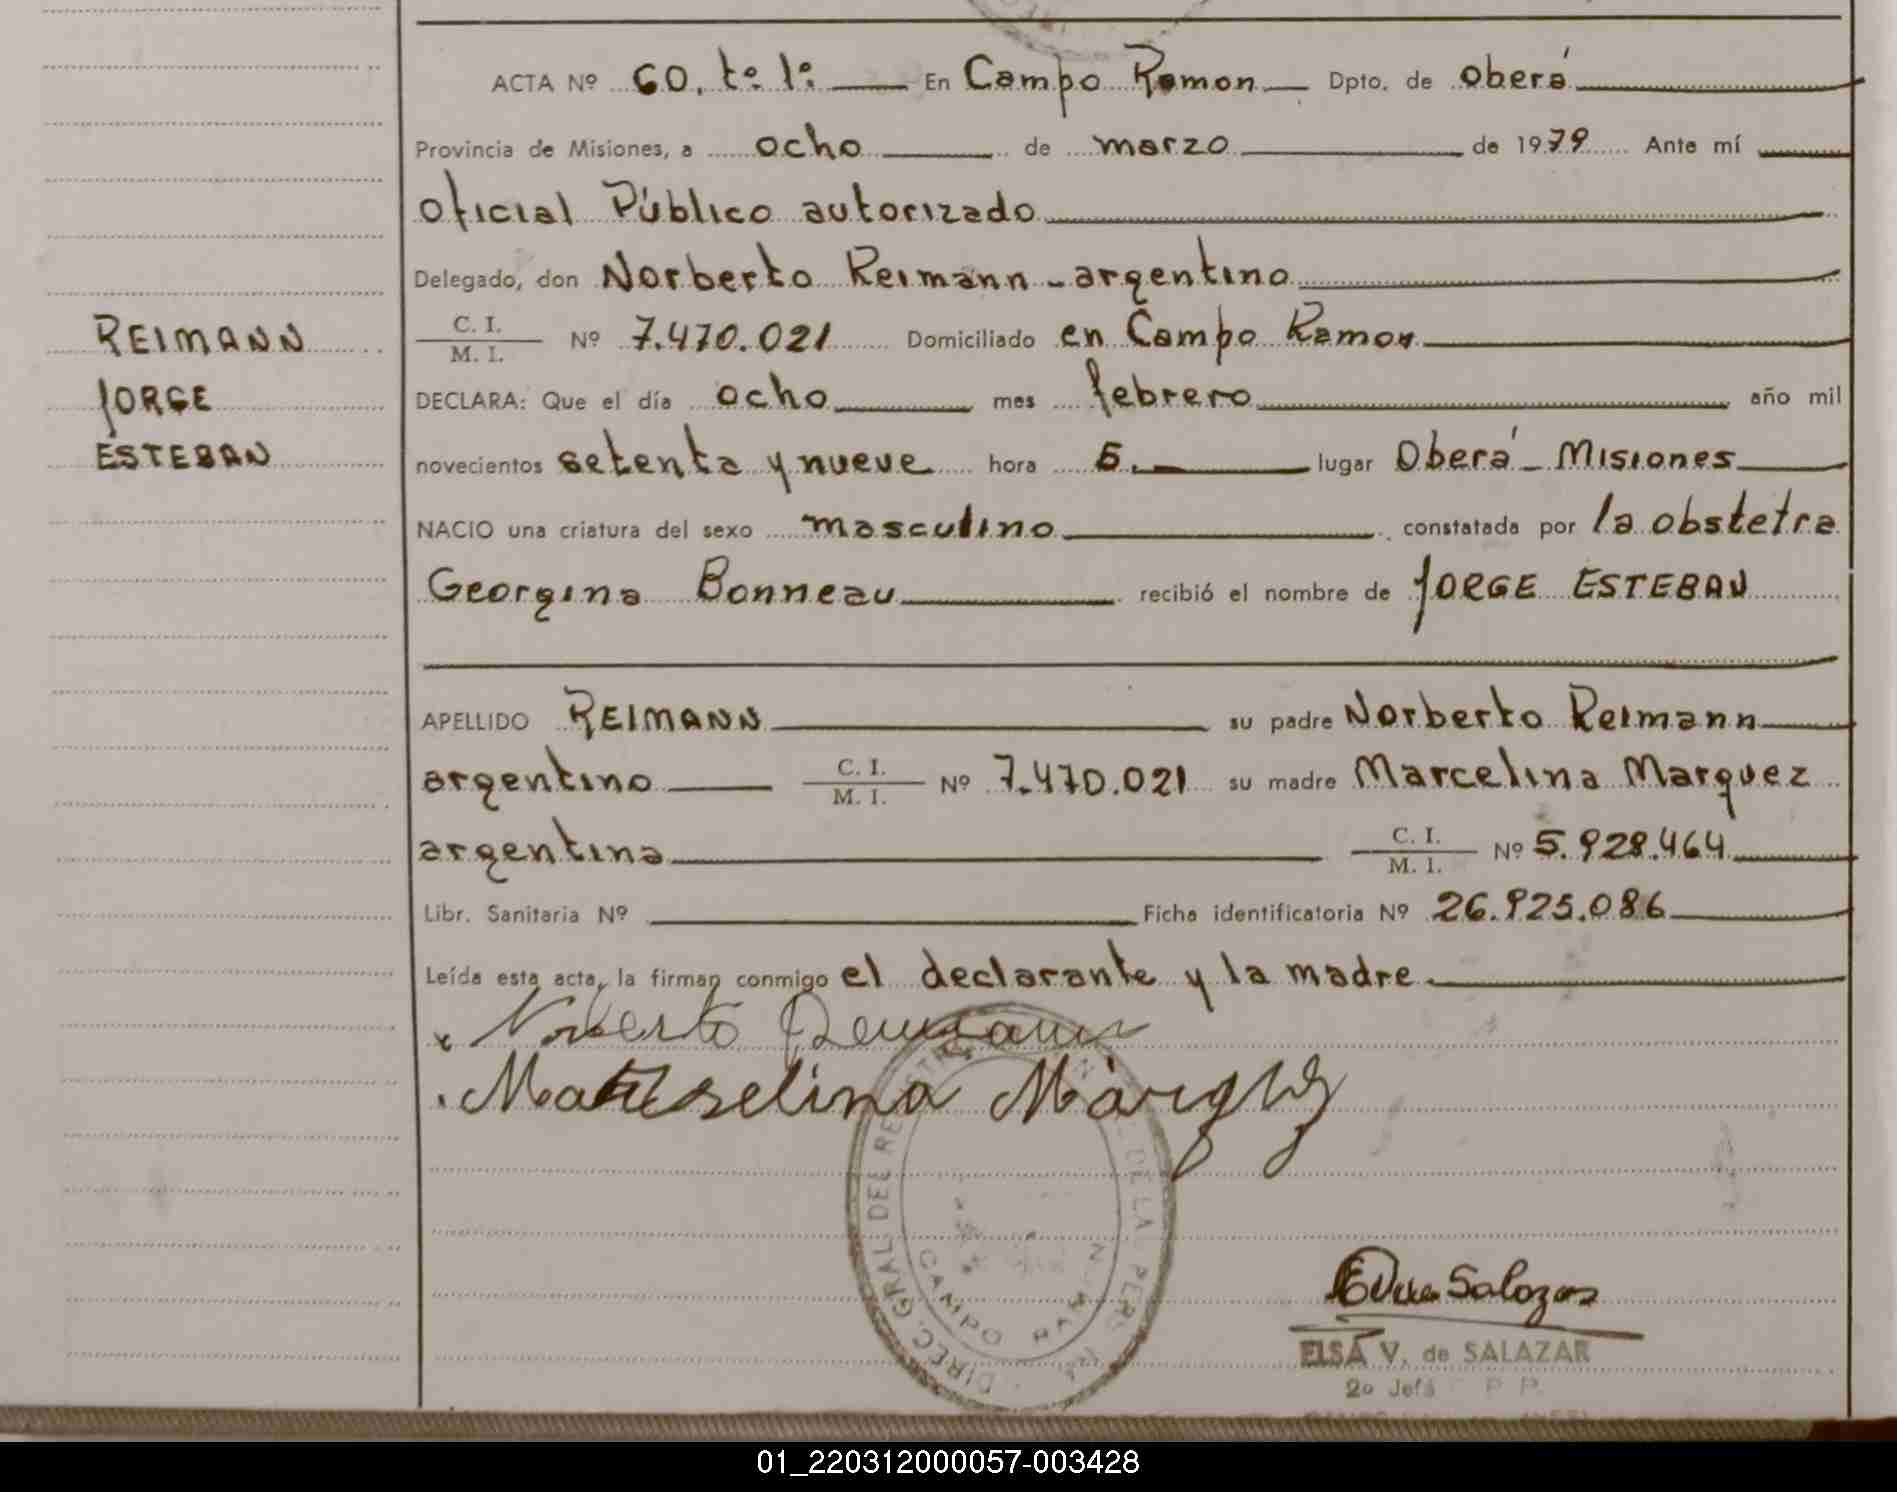 ACTA Nº 60. tº 1º En Campo Ramon Dpto. de Oberá
Provincia de Misiones, a ocho de marzo de 1979 Ante mí
Oficial Público autorizado
Delegado, don Norberto Reimann - argentino
C. I.
M. I. Nº 7.470.021 Domiciliado en Campo Ramon
DECLARA: Que el día ocho mes febrero año mil
novecientos setenta y nueve hora 5. lugar Oberá - Misiones
NACIO una criatura del sexo masculino constatada por la obstetra
Georgina Bonneau recibió el nombre de JORGE ESTEBAN
APELLIDO REIMANN su padre Norberto Reimann
argentino C. I.
M. I. Nº 7.470.021 su madre Marcelina Marquez
argentina C. I.
M. I. Nº 5.928.464
Libr. Sanitaria Nº Ficha identificatoria Nº 26.925.086
Leída esta acta, la firman conmigo el declarante y la madre
REIMANN
JORGE
ESTEBAN
x Norberto Reimann
Marselina Márquez
DIREC. GRAL DEL DE LA PERS
CAMPO RAMON
Salazar
ELSA V. de SALAZAR
2º Jefa
01_220312000057-003428